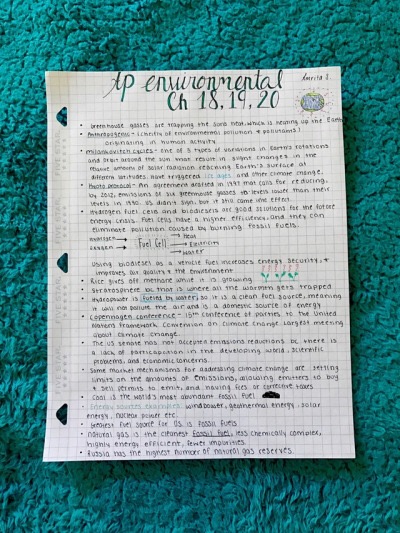 ap environmental
Ch 18, 19, 20
• Greenhouse gasses are trapping the suns heat which is heating up the Earth
• Anthropogenic - (chiefly of environmental pollution + pollutants)
originating in human activity
• Milankovitch cycles - one of 3 types of variations in Earth's rotations
and orbit around the sun that result in slight changes in the
relative amount of solar radiation reaching Earth's surface at
different latitudes. have triggered ice ages and other climate change.
• Kyoto protocol - An agreement drafted in 1997 that calls for reducing,
by 2012, emissions of six greenhouse gasses to levels lower than their
levels in 1990. US didn't sign, but it still came into effect.
• Hydrogen fuel cells and biodiesels are good solutions for the future
energy crisis. Fuel cells have a higher efficiency, and they can
eliminate pollution caused by burning fossil fuels.
Hydrogen → Fuel Cell → Heat
Oxygen → → Electricity
→ Water
Using biodiesel as a vehicle fuel increases energy security, +
improves air quality + the environment
• Rice gives off methane while it is growing
• Stratosphere bc that is where all the warmth gets trapped
• Hydropower is fueled by water, so it is a clean fuel source, meaning
it will not pollute the air and is a domestic source of energy
• Copenhagen conference - 15th Conference of parties to the United
Nations Framework Convention on climate change. Largest meeting
about climate change.
• The US senate has not accepted emissions reductions bc there is
a lack of participation in the developing world, scientific
problems, and economic concerns.
• Some market mechanisms for addressing climate change are setting
limits on the amounts of emissions, allowing emitters to buy
+ sell permits to emit, and having fees or corrective taxes
• Coal is the world's most abundant fossil fuel
• Energy sources examples: wind power, geothermal energy, solar
energy, nuclear power etc.
• Greatest fuel source for US is fossil fuels
• Natural gas is the cleanest fossil fuel, less chemically complex,
highly energy efficient, fewer impurities.
• Russia has the highest number of natural gas reserves.